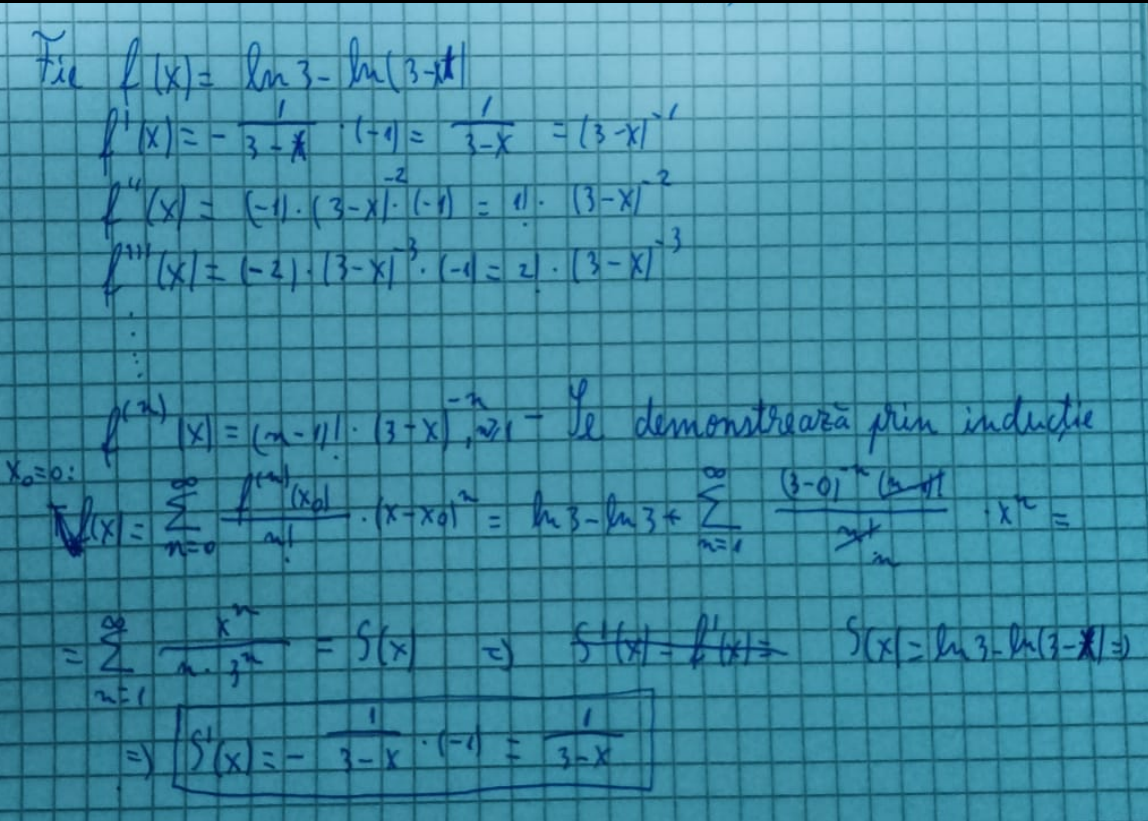 Fie f(x) = ln 3 - ln(3-x)
f'(x) = - 1/(3-x) · (-1) = 1/(3-x) = (3-x)^-1
f''(x) = (-1) · (3-x)^-2 · (-1) = 1! · (3-x)^-2
f'''(x) = (-2) · (3-x)^-3 · (-1) = 2! · (3-x)^-3
⋮
f^(n) (x) = (n-1)! · (3-x)^-n, n≥1 - Se demonstrează prin inducție
x₀=0:
f(x) = ∑_{n=0}^{∞} f^(n)(x₀)/n! · (x-x₀)^n = ln 3 - ln 3 + ∑_{n=1}^{∞} (3-0)^-n (n-1)!/n! n · x^n =
= ∑_{n=1}^{∞} x^n/(n·3^n) = S(x) => S'(x) = f'(x) = S(x) = ln 3 - ln(3-x) =>
=> S'(x) = - 1/(3-x) · (-1) = 1/(3-x)